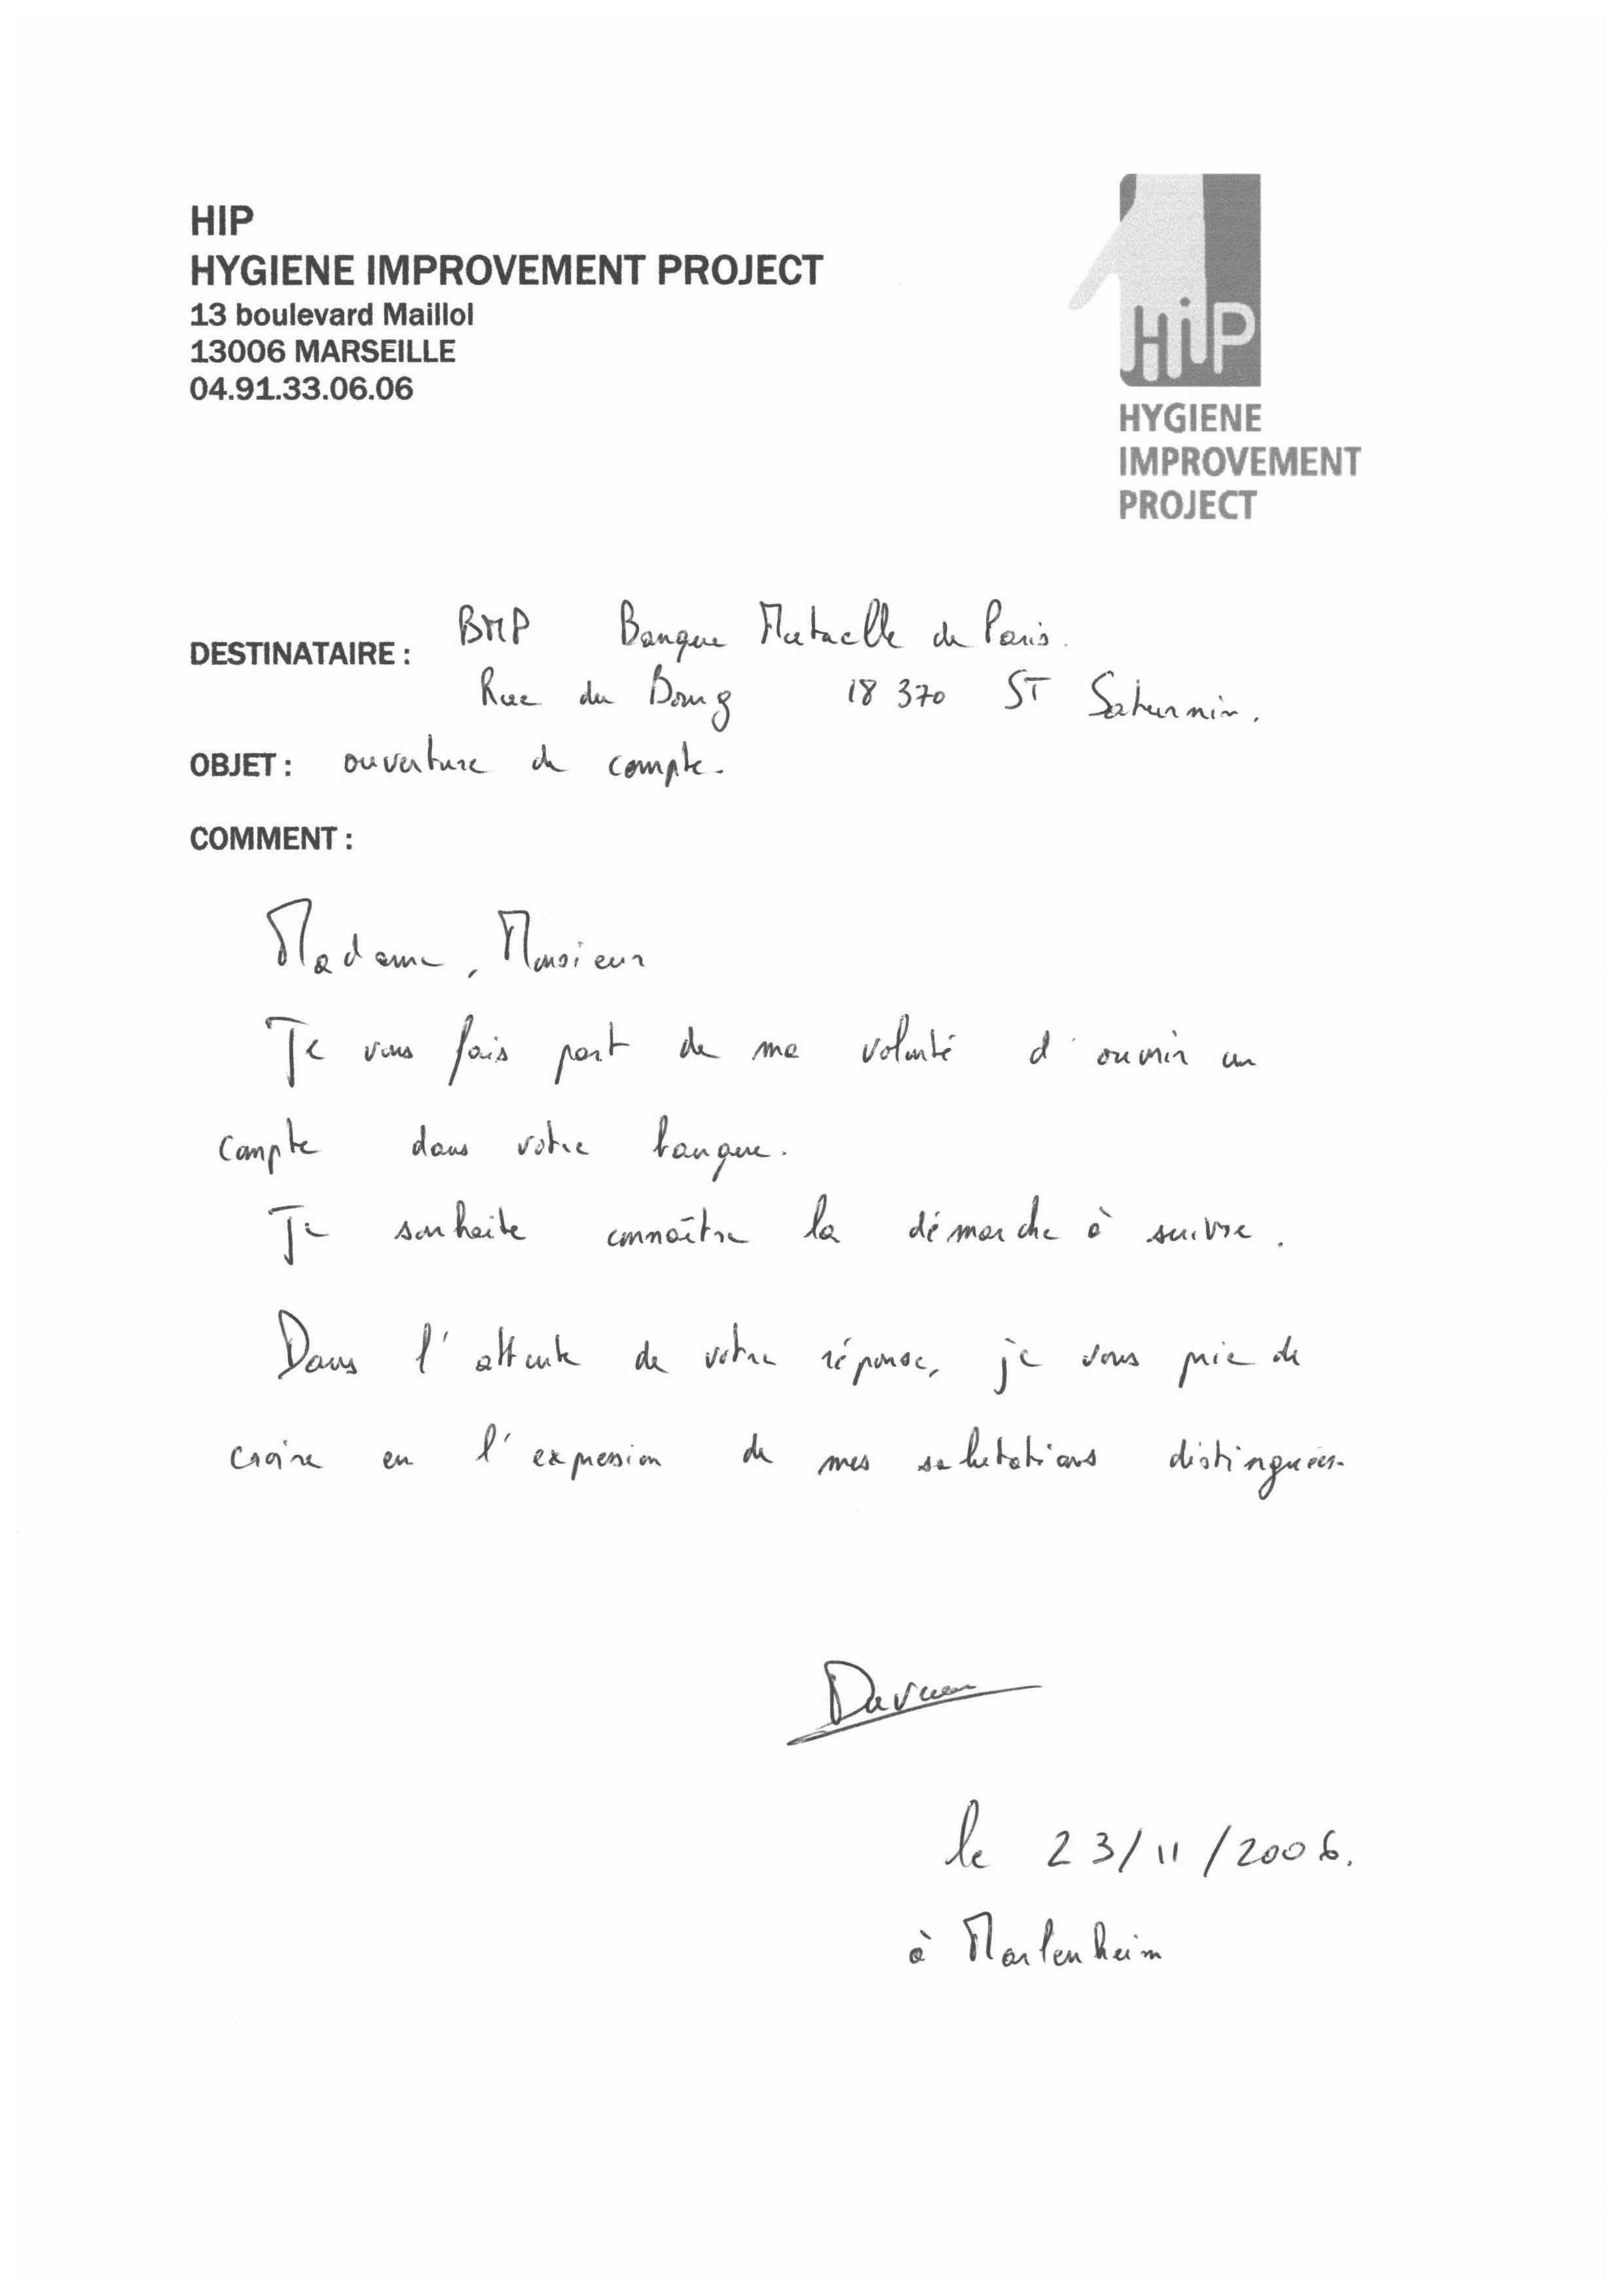 HIP
HYGIENE IMPROVEMENT PROJECT
13 boulevard Maillol
13006 MARSEILLE
04.91.33.06.06
HiP
HYGIENE
IMPROVEMENT
PROJECT
DESTINATAIRE : BMP Banque Mutuelle de Paris.
Rue du Bourg 18 370 ST Saturnin.
OBJET : ouverture de compte.
COMMENT :
Madame, Monsieur
Je vous fais part de ma volonté d'ouvrir un
compte dans votre banque.
Je souhaite connaître la démarche à suivre.
Dans l'attente de votre réponse, je vous prie de
croire en l'expression de mes salutations distinguées.
le 23/11/2006.
à Marlenheim